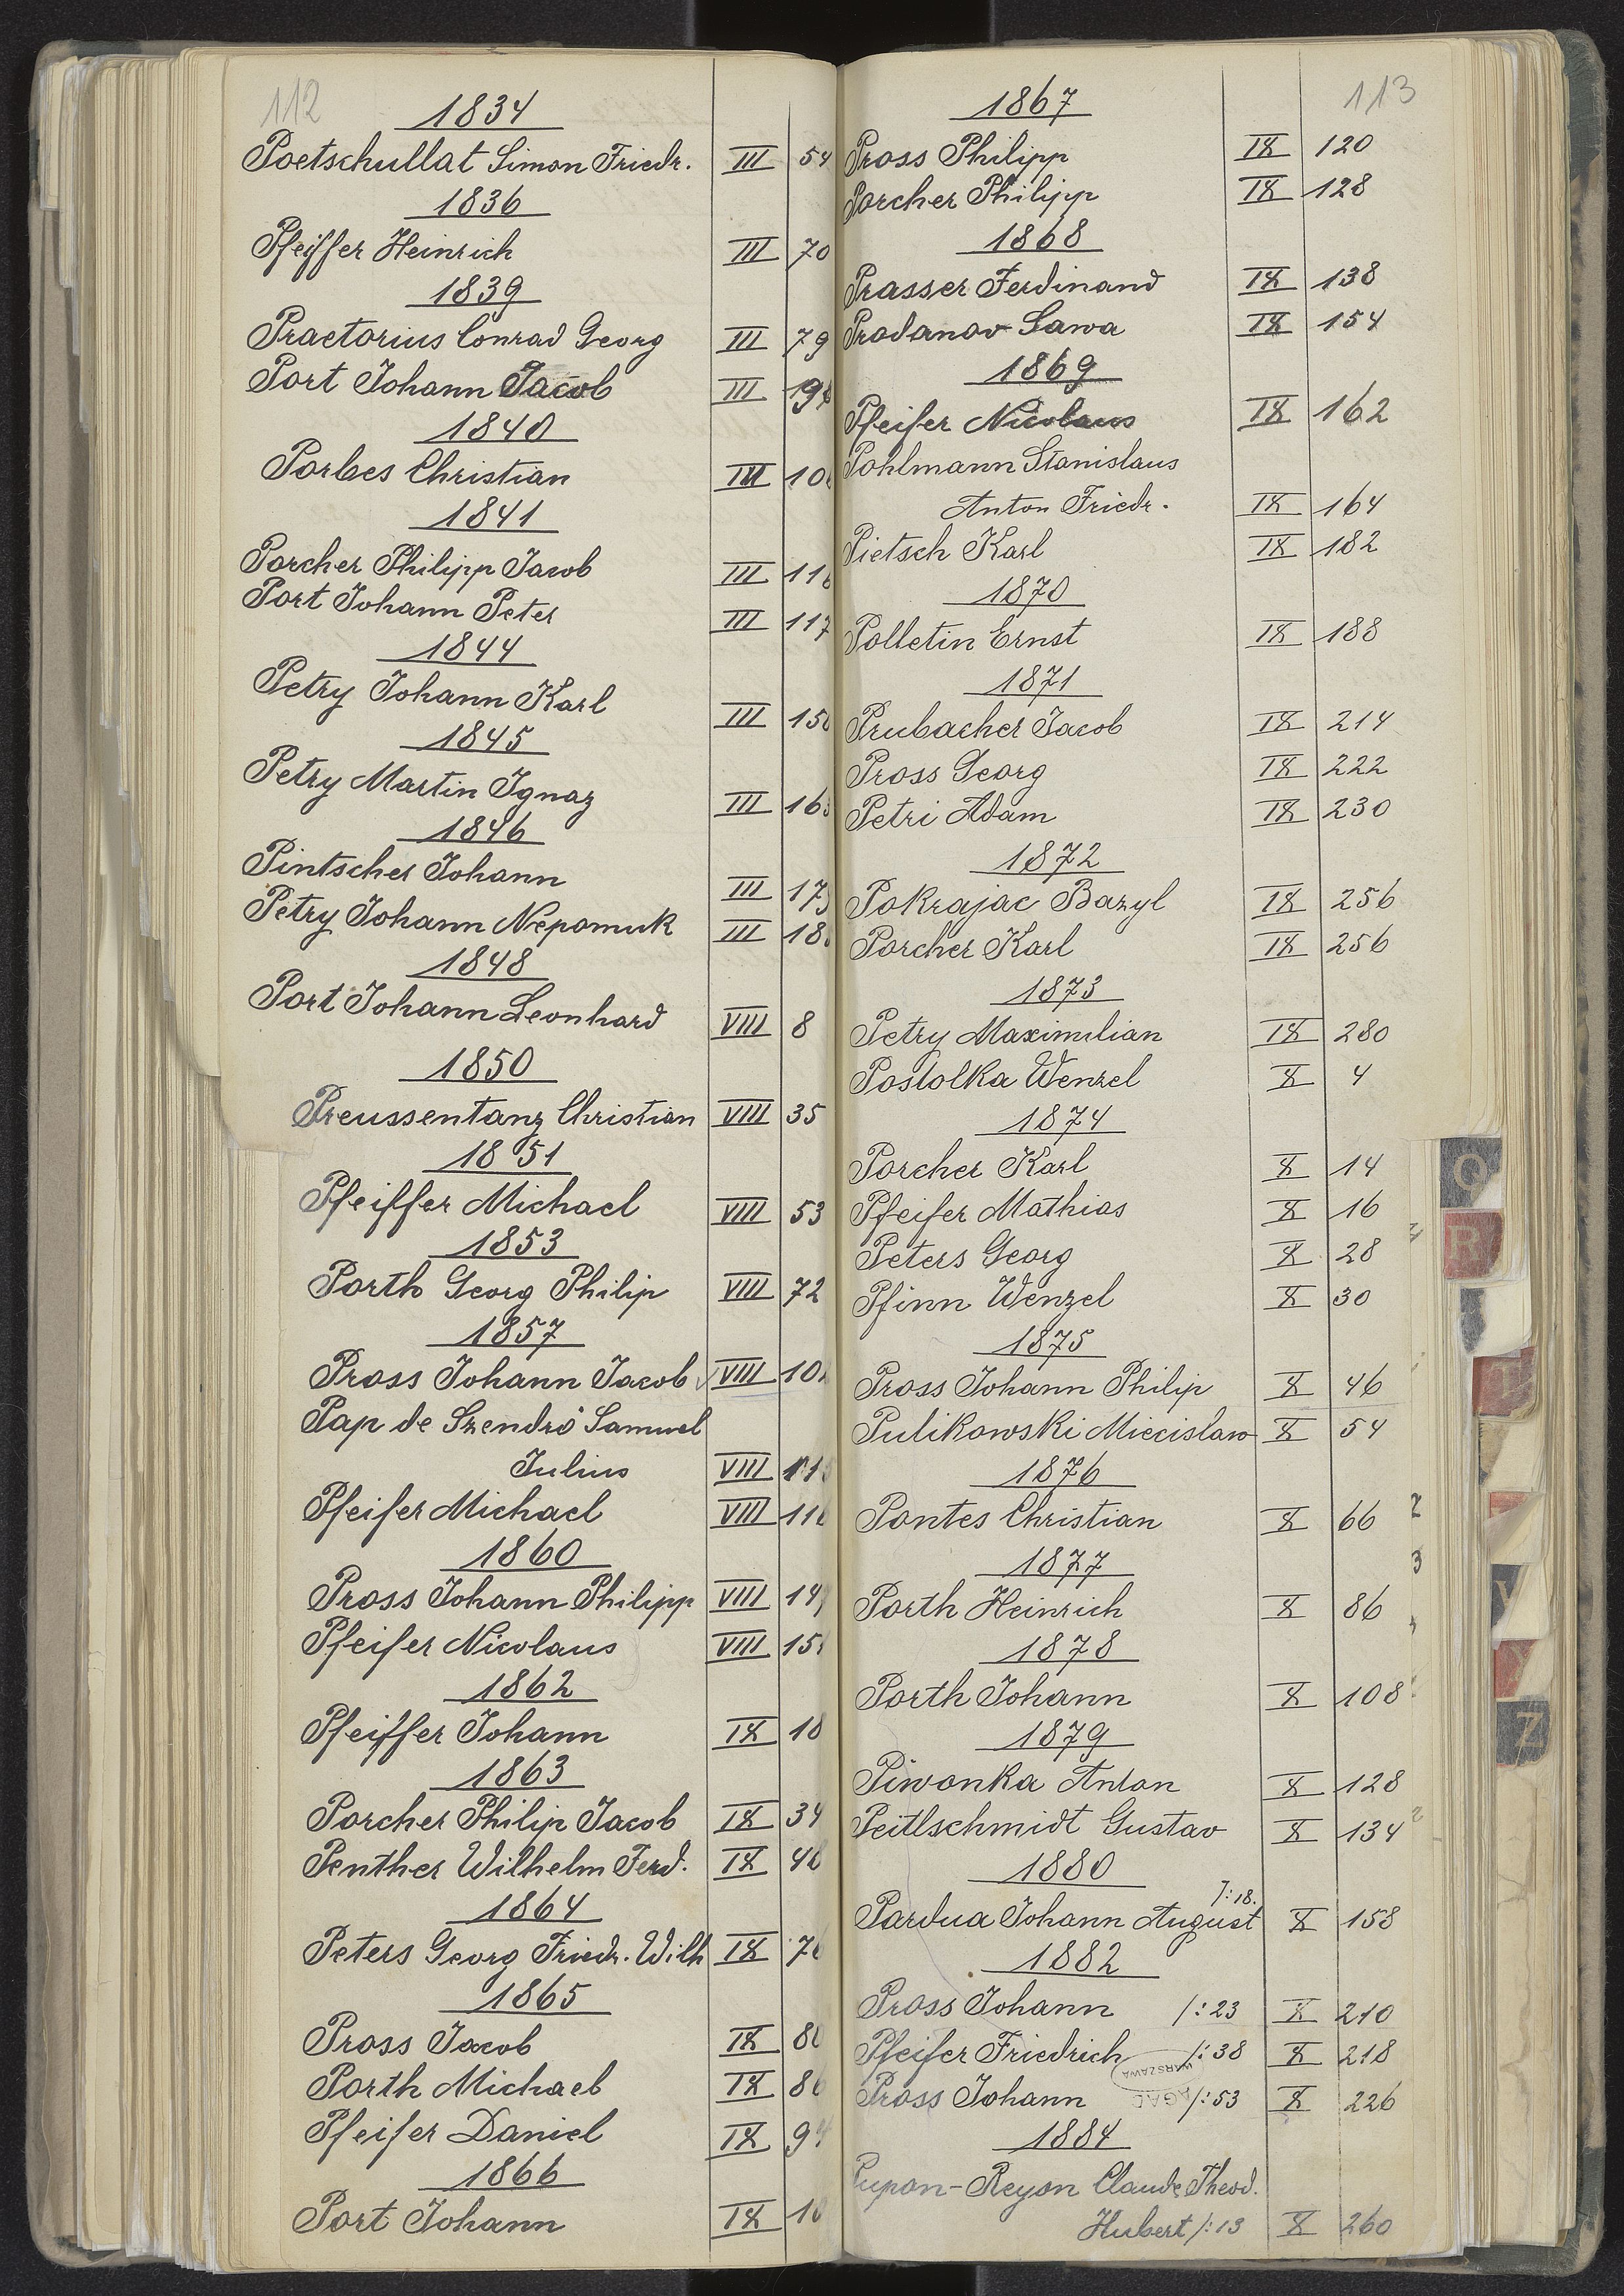 112
1834
Poetschullat Simon Friedr. III 54
1836
Pfeiffer Heinrich III 70
1839
Praetorius Conrad Georg III 79
Port Johann Jacob III
1840
Porbes Christian III
1841
Porcher Philipp Jacob III
Port Johann Peter III 117
1844
Petry Johann Karl III
1845
Petry Martin Ignaz III
1846
Pintscher Johann III
Petry Johann Nepomuk III
1848
Port Johann Leonhard VIII 8
1850
Preussentanz Christian VIII 35
1851
Pfeiffer Michael VIII 53
1853
Porth Georg Philip VIII 72
1857
Pross Johann Jacob VIII
Pap de Szendrö Samuel
Julius VIII
Pfeifer Michael VIII
1860
Pross Johann Philipp VIII
Pfeifer Nicolaus VIII
1862
Pfeiffer Johann IX 18
1863
Porcher Philip Jacob IX 34
Penther Wilhelm Ferd. IX
1864
Peters Georg Friedr. Wilh IX
1865
Pross Jacob IX
Porth Michael IX
Pfeifer Daniel IX 94
1866
Port Johann IX
113
1867
Pross Philipp IX 120
Porcher Philipp IX 128
1868
Prasser Ferdinand IX 138
Prodanov Sawa IX 154
1869
Pfeifer Nicolaus IX 162
Pohlmann Stanislaus
Anton Friedr. IX 164
Pietsch Karl IX 182
1870
Polletin Ernst IX 188
1871
Prubacher Jacob IX 214
Pross Georg IX 222
Petri Adam IX 230
1872
Pokrajac Bazyl IX 256
Porcher Karl IX 256
1873
Petry Maximilian IX 280
Postolka Wenzel X 4
1874
Porcher Karl X 14
Pfeifer Mathias X 16
Peters Georg X 28
Pfinn Wenzel X 30
1875
Pross Johann Philip X 46
Pulikowski Miecislaw X 54
1876
Pontes Christian X 66
1877
Porth Heinrich X 86
1878
Porth Johann X 108
1879
Piwonka Anton X 128
Peitlschmidt Gustav X 134
1880
/:18.
Pardua Johann August X 158
1882
Pross Johann /:23 X 210
Pfeifer Friedrich /:38 X 218
WARSZAWA
AGAD
Pross Johann /:53 X 226
1884
Pupon-Reyon Claude Theod.
Hubert /:13 X 260
Q
R
U
Z